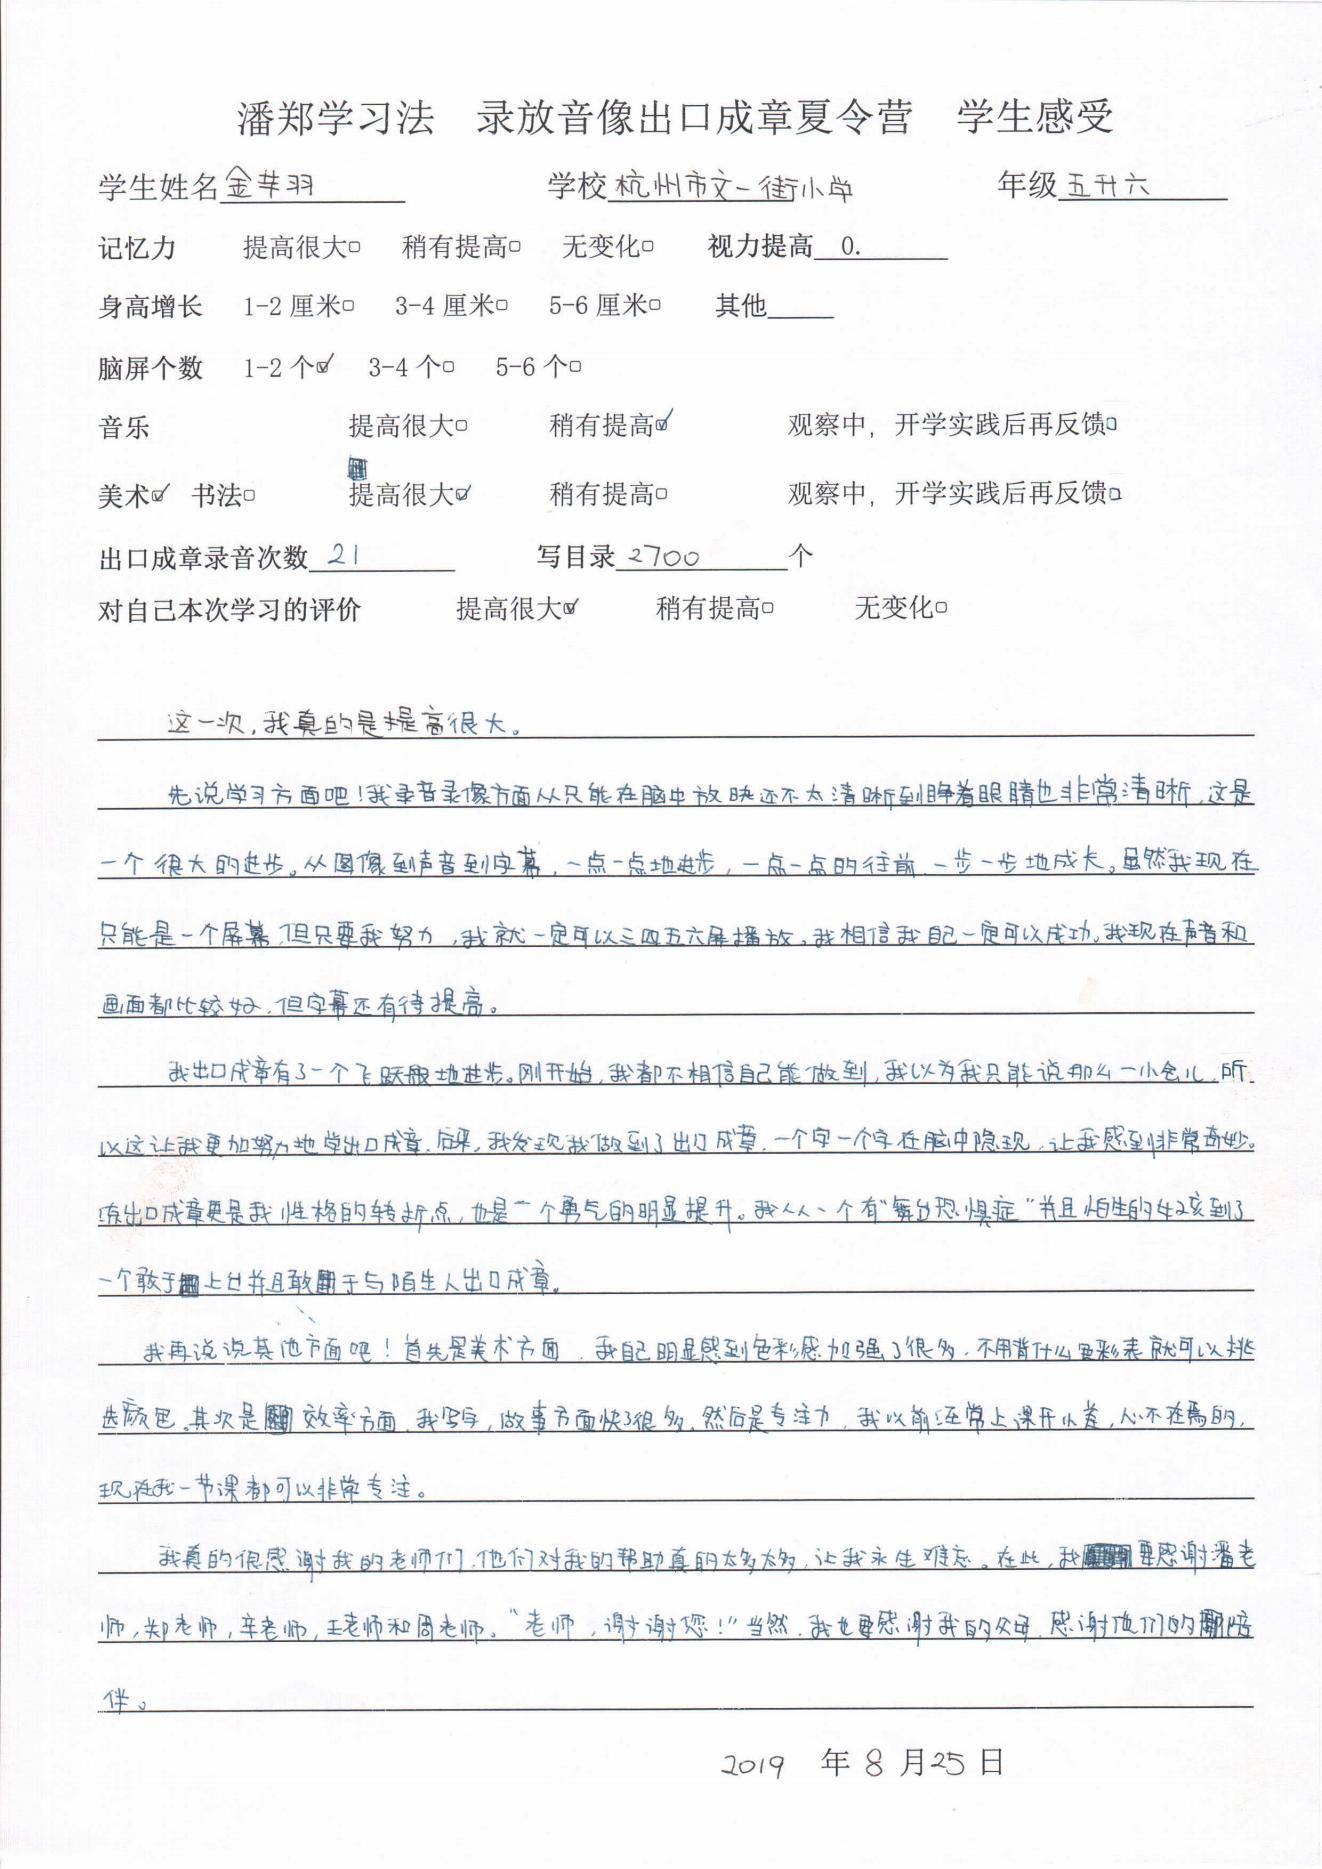 潘郑学习法 录放音像出口成章夏令营 学生感受
学生姓名金芊羽 学校杭州市文一街小学 年级五升六
记忆力 提高很大□ 稍有提高□ 无变化□ 视力提高 0.
身高增长 1-2 厘米□ 3-4 厘米□ 5-6 厘米□ 其他
脑屏个数 1-2 个☑ 3-4 个□ 5-6 个□
音乐 提高很大□ 稍有提高☑ 观察中，开学实践后再反馈□
美术☑ 书法□ 提高很大☑ 稍有提高□ 观察中，开学实践后再反馈□
出口成章录音次数 21 写目录 2700 个
对自己本次学习的评价 提高很大☑ 稍有提高□ 无变化□
这一次，我真的是提高很大。
先说学习方面吧！我录音录像方面从只能在脑中放映还不太清晰到睁着眼睛也非常清晰，这是
一个很大的进步。从图像到声音到字幕，一点一点地进步，一点一点的往前，一步一步地成长。虽然我现在
只能是一个屏幕，但只要我努力，我就一定可以三四五六屏播放。我相信我自己一定可以成功。我现在声音和
画面都比较好，但字幕还有待提高。
我出口成章有了一个飞跃般地进步。刚开始，我都不相信自己能做到，我以为我只能说那么一小会儿，所
以这让我更加努力地学出口成章，后来，我发现我做到了出口成章，一个字一个字在脑中隐现，让我感到非常奇妙。
练出口成章更是我性格的转折点，也是一个勇气的明显提升。我从一个有“舞台恐惧症”并且怕生的女孩到了
一个敢于上台并且敢于与陌生人出口成章。
我再说说其他方面吧！首先是美术方面，我自己明显感到色彩感加强了很多，不用背什么色彩表就可以挑
选颜色。其次是效率方面，我写字，做事方面快了很多。然后是专注力，我以前经常上课开小差，心不在焉的，
现在我一节课都可以非常专注。
我真的很感谢我的老师们，他们对我的帮助真的太多太多，让我永生难忘。在此，我要感谢潘老
师，郑老师，辛老师，王老师和周老师。“老师，谢谢您！”当然，我也要感谢我的父母，感谢他们的陪
伴。
2019 年 8 月 25 日